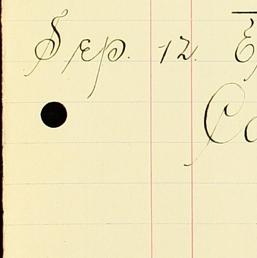 Sep. 12